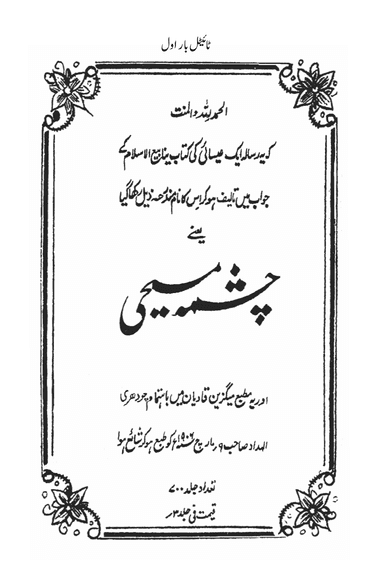 ٹائیٹل بار اول
الحمد للہ والمنت
کہ یہ رسالہ ایک عیسائی کی کتاب ینابیع الاسلام کے
جواب میں تالیف ہو کر اس کا نام مندرجہ ذیل رکھا گیا
یعنے
چشمہ مسیحی
اور یہ مطبع میگزین قادیان میں باہتمام چودھری
الہداد صاحب ۹؍ مارچ ۱۹۰۶ء کو طبع ہو کر شائع ہوا
تعداد جلد ۷۰۰
قیمت فی جلد ۳؍